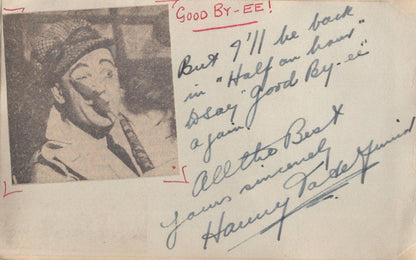 GOOD BY-EE!
But I'll be back
in "Half an hour"
to say "good By-ee"
again!
All the Best
Yours sincerely
Harry